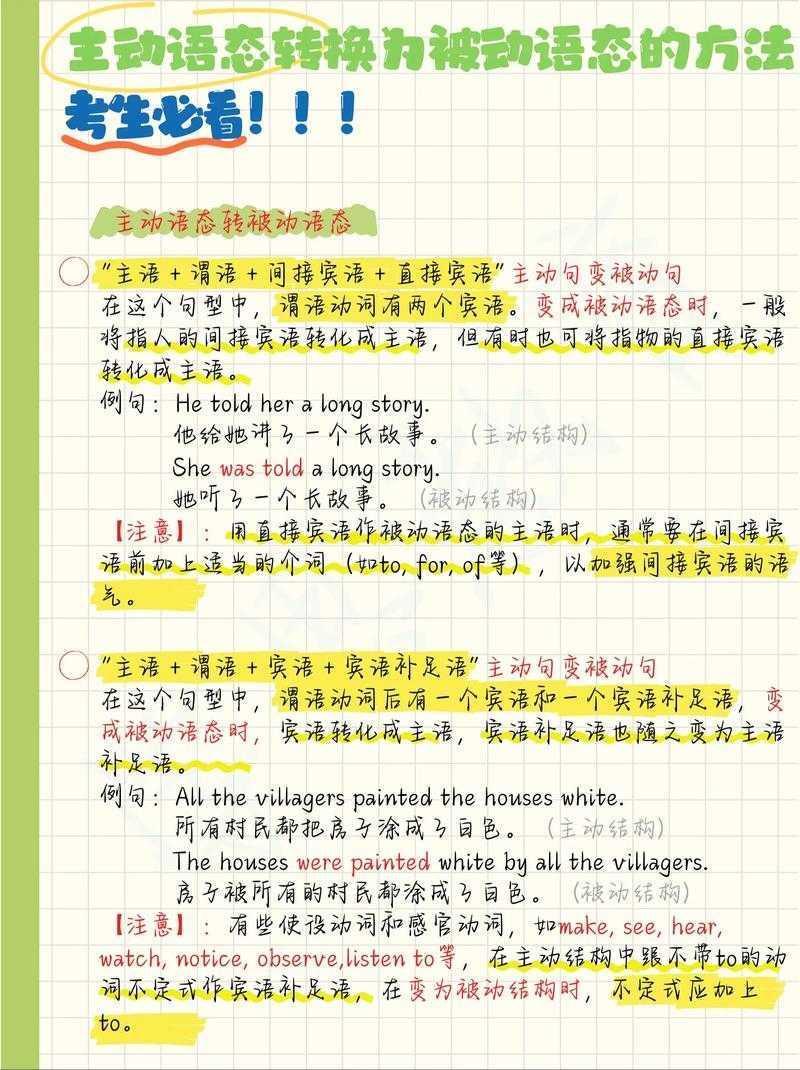 主动语态转换为被动语态的方法
考生必看！！！
主动语态转被动语态
"主语+谓语+间接宾语+直接宾语"主动句变被动句
在这个句型中，谓语动词有两个宾语。变成被动语态时，一般
将指人的间接宾语转化成主语，但有时也可将指物的直接宾语
转化成主语。
例句：He told her a long story.
他给她讲了一个长故事。（主动结构）
She was told a long story.
她听了一个长故事。（被动结构）
【注意】：用直接宾语作被动语态的主语时，通常要在间接宾
语前加上适当的介词（如to, for, of等），以加强间接宾语的语
气。
"主语+谓语+宾语+宾语补足语"主动句变被动句
在这个句型中，谓语动词后有一个宾语和一个宾语补足语，变
成被动语态时，宾语转化成主语，宾语补足语也随之变为主语
补足语。
例句：All the villagers painted the houses white.
所有村民都把房子涂成了白色。（主动结构）
The houses were painted white by all the villagers.
房子被所有的村民都涂成了白色。（被动结构）
【注意】：有些使役动词和感官动词，如make, see, hear,
watch, notice, observe,listen to等，在主动结构中跟不带to的动
词不定式作宾语补足语，在变为被动结构时，不定式应加上
to。